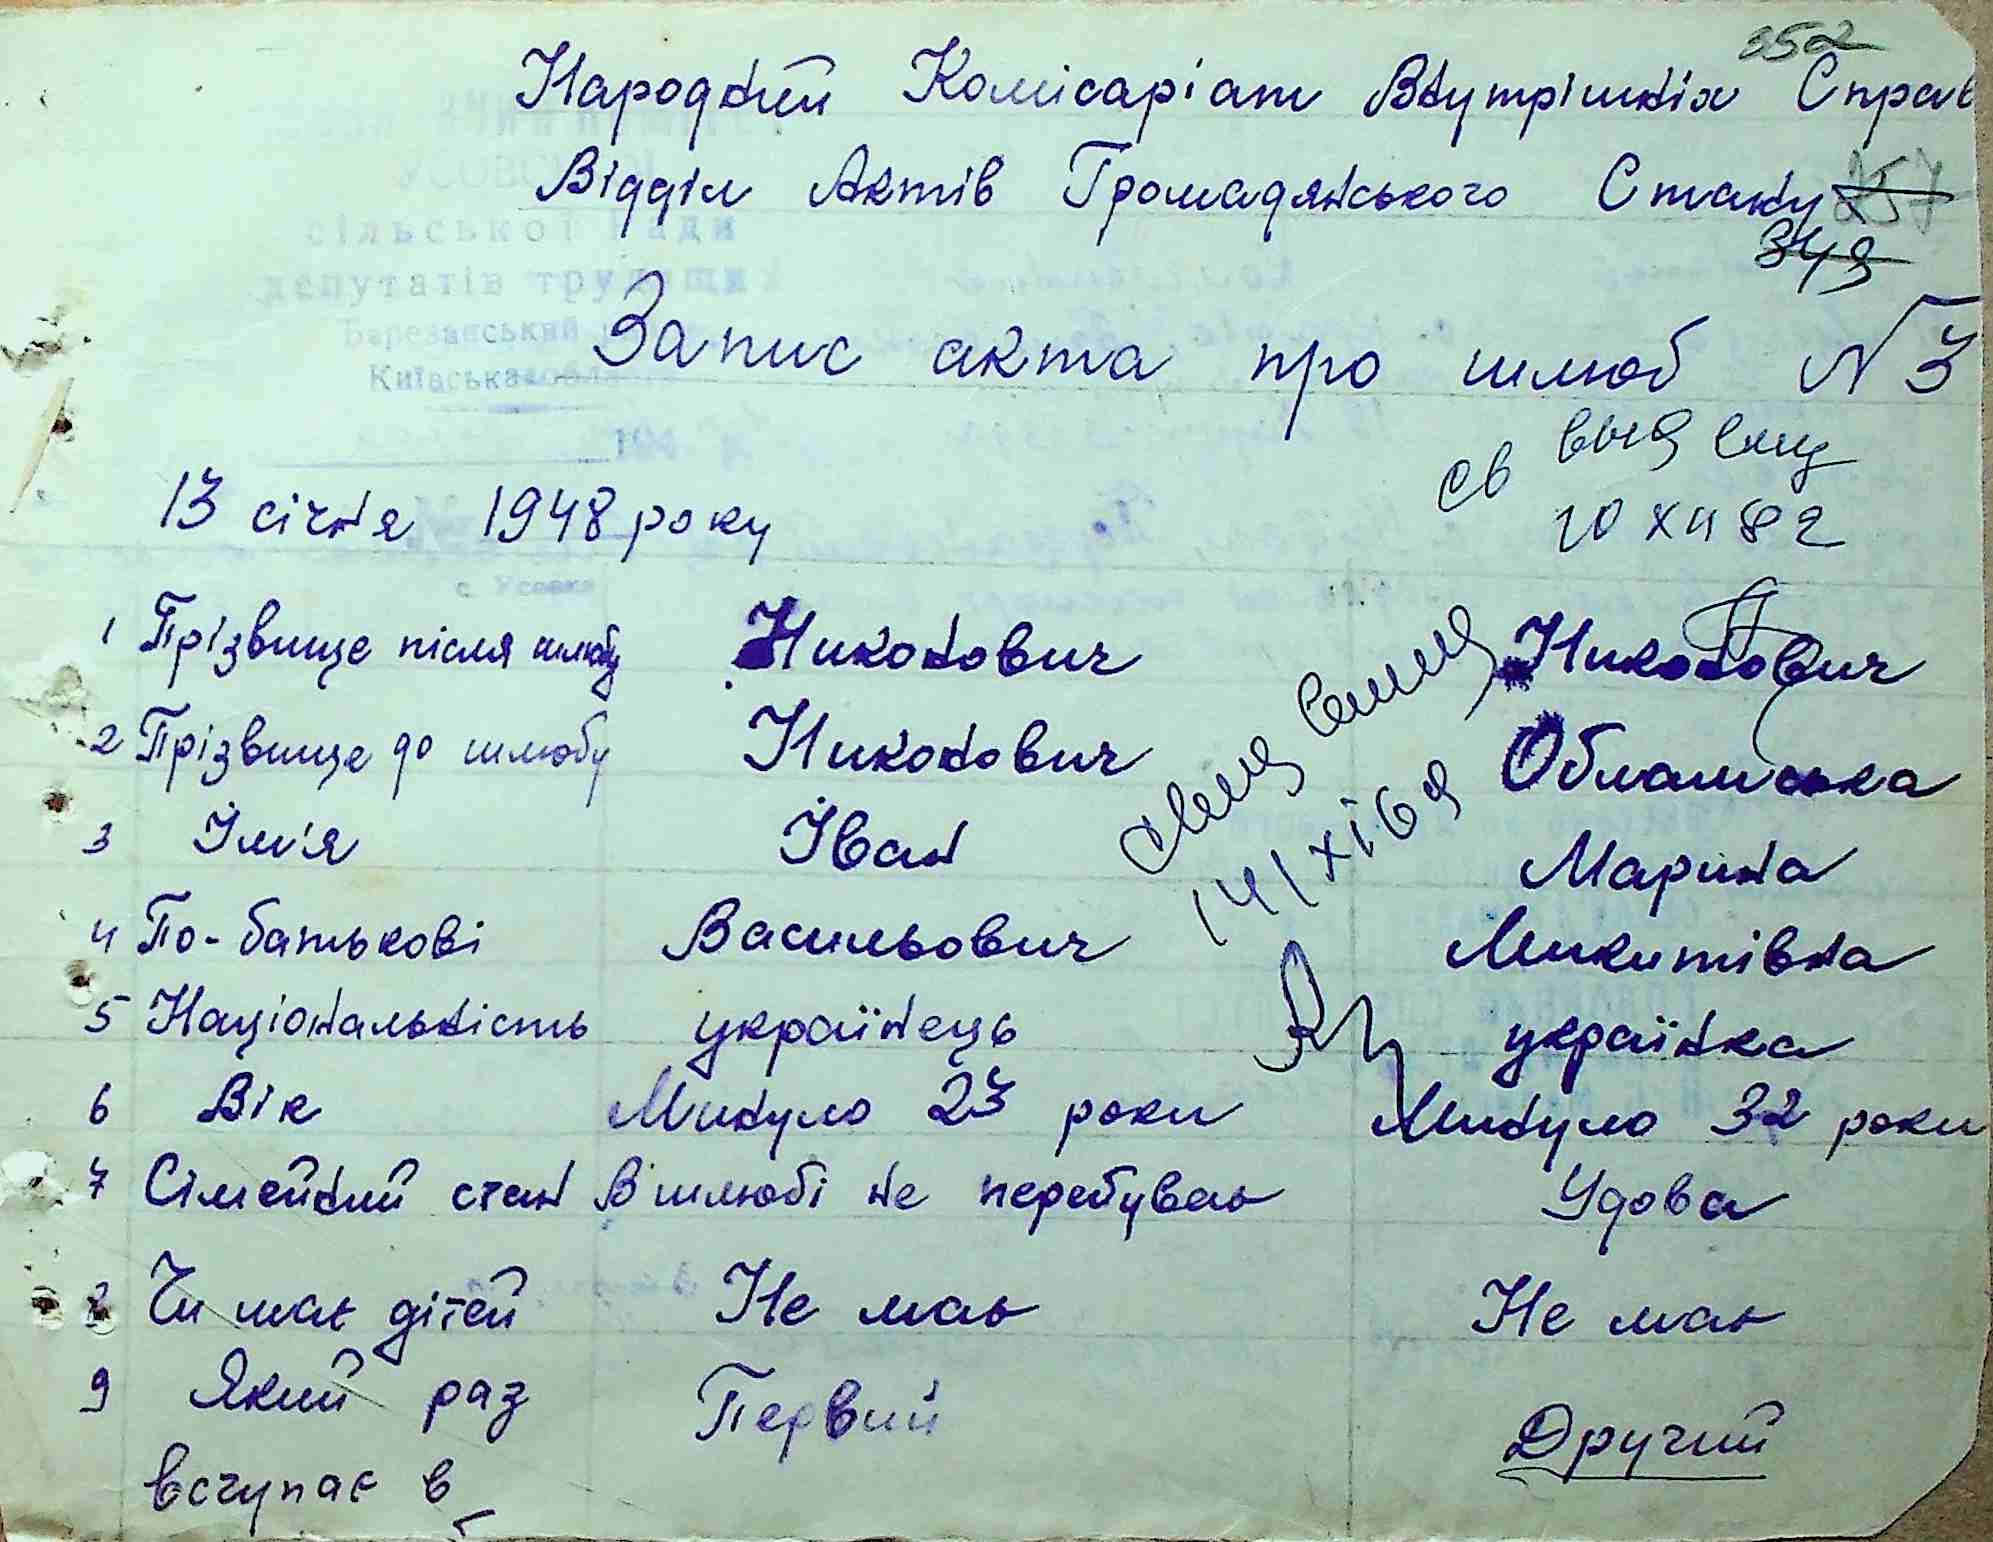 352
Народний Комісаріат Внутрішніх Справ
Відділ Актів Громадянського Стану 257
349
Запис акта про шлюб №3
св выд
10 XII 82
13 січня 1948 року
1 Прізвище після шлюбу Никонович Никонович
2 Прізвище до шлюбу Никонович
3 Ім'я Іван Марина
14/XI 69
4 По-батькові Васильович Микитівна
5 Національність українець українка
6 Вік Минуло 23 роки Минуло 32 роки
7 Сімейний стан В шлюбі не перебував Удова
8 Чи має дітей Не має Не має
9 Який раз Первий Другий
вступає в
сільської Ради
депутатів трудящих
Березанський
Київська
194
с Усовка